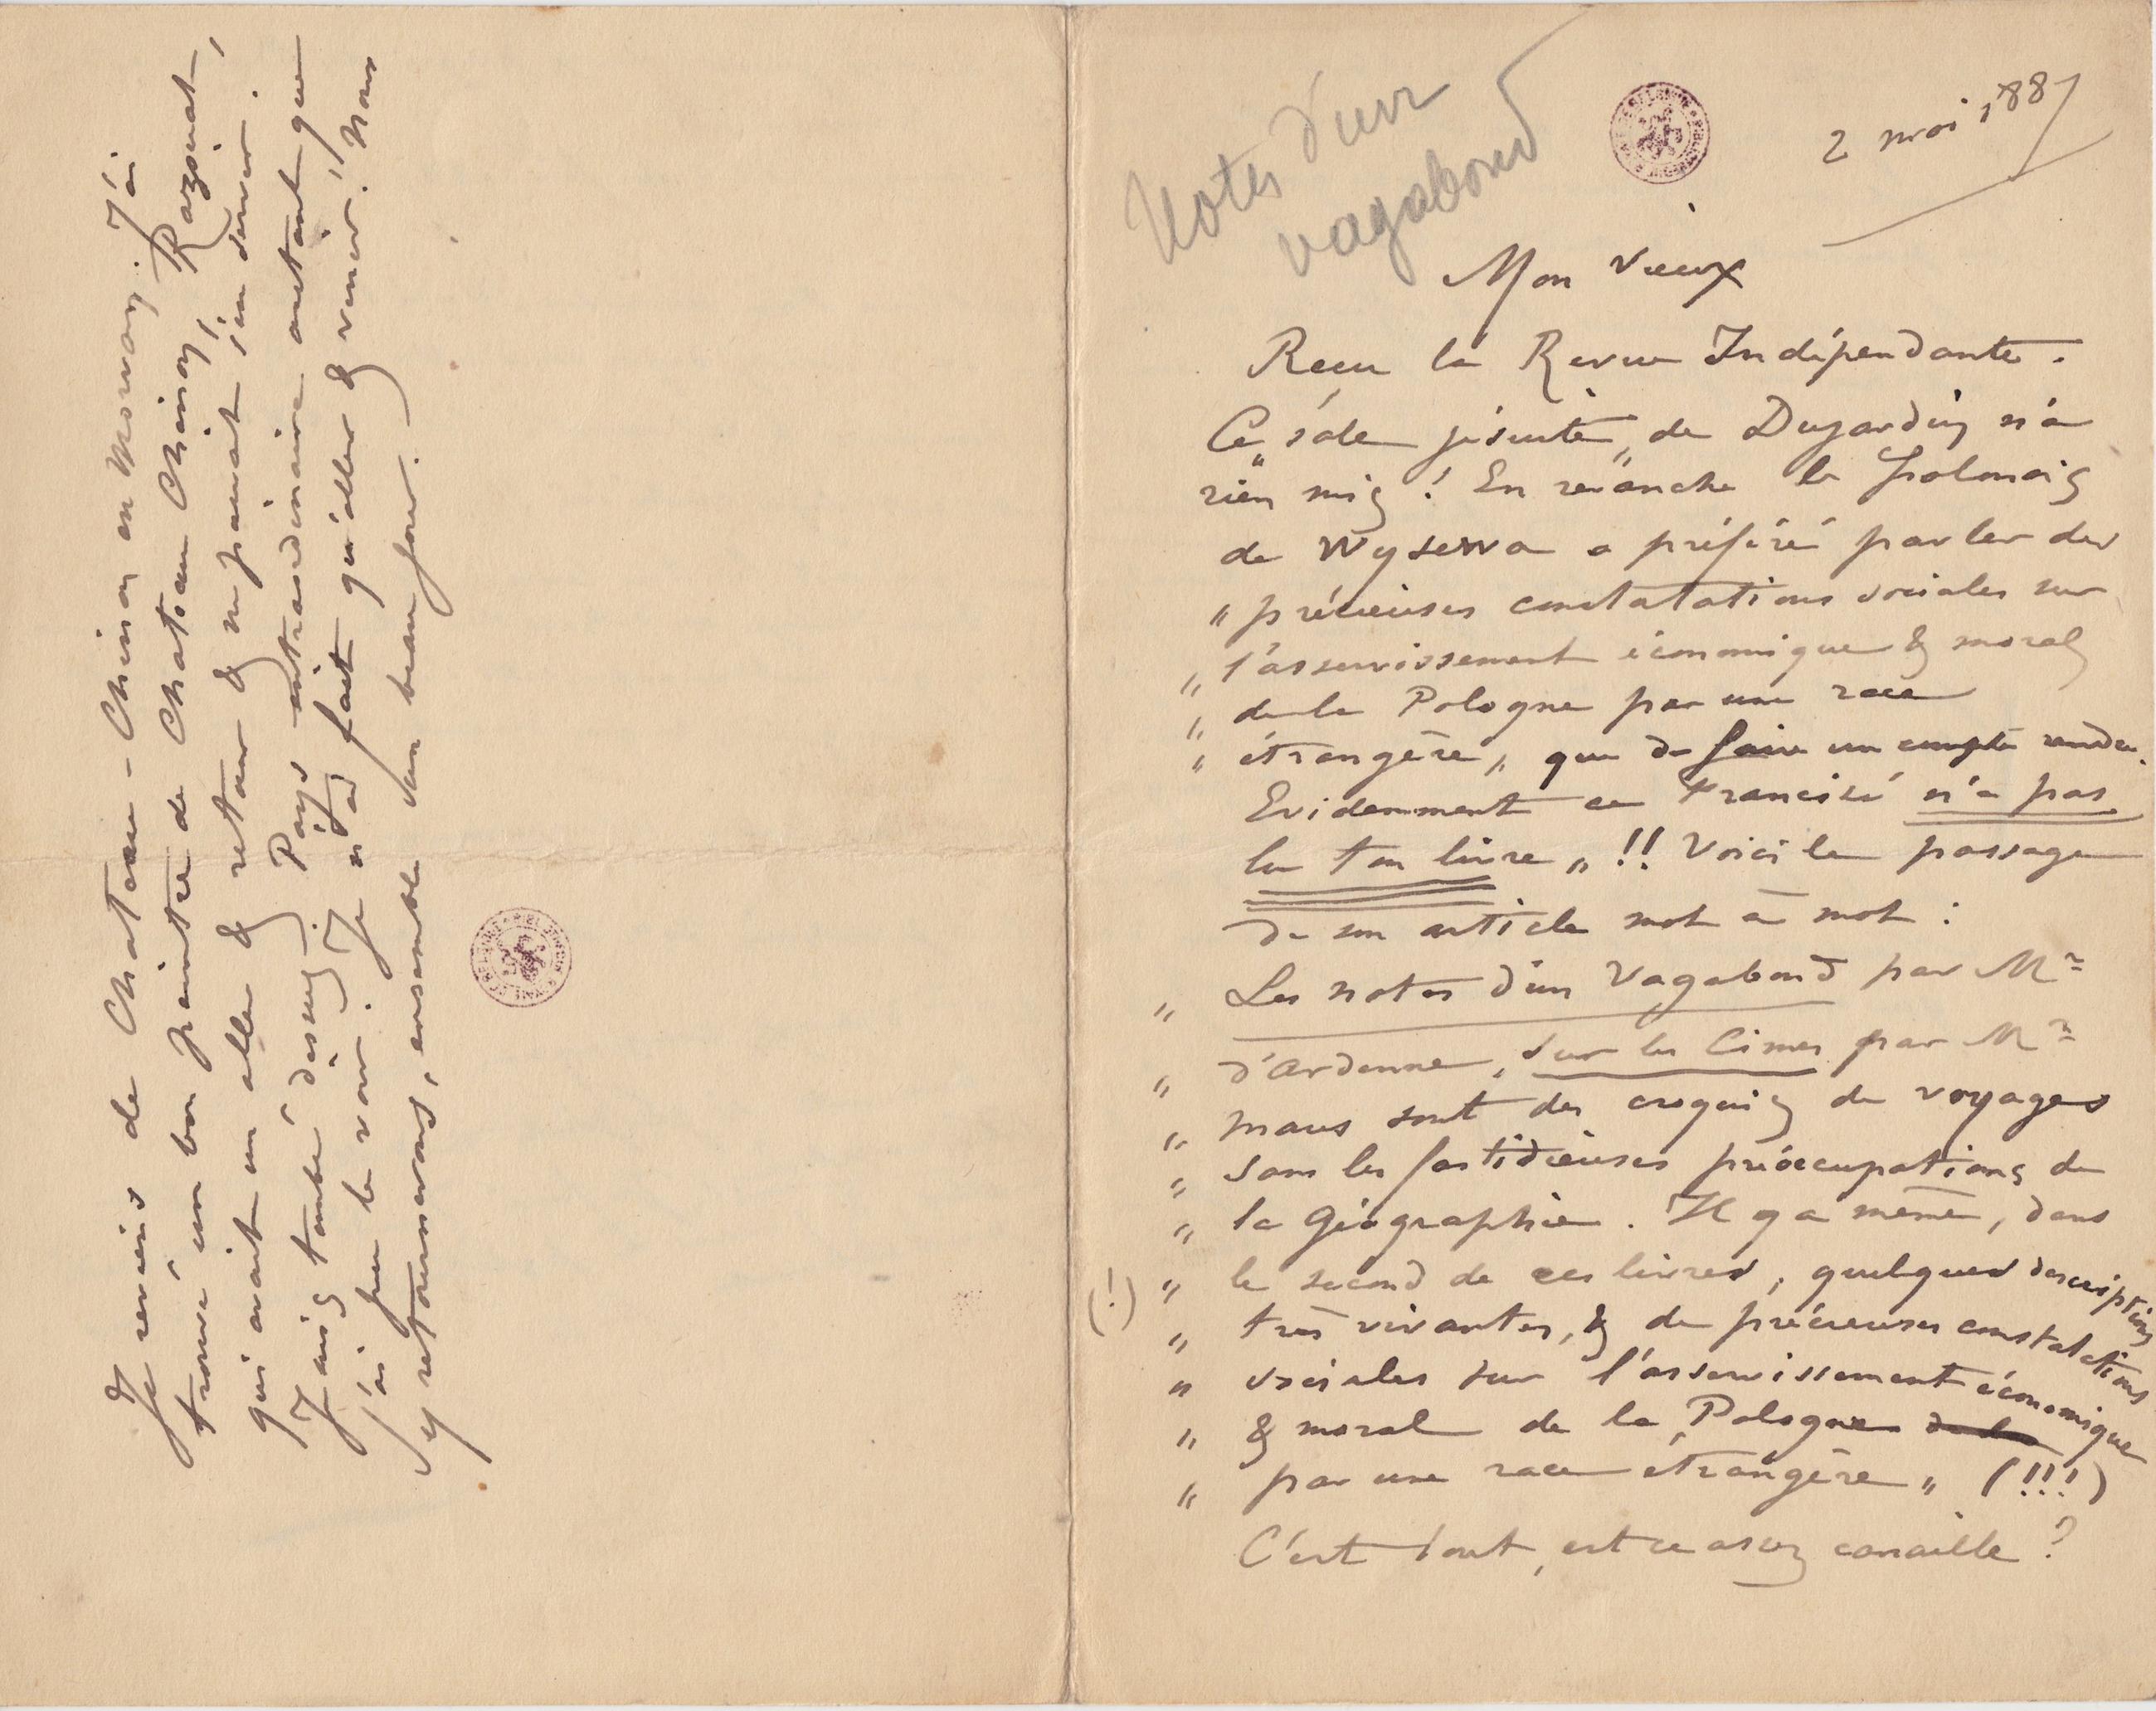 Notes d'un
vagabond
2 mai 1887
Mon Vieux
Reçu la Revue Indépendante.
Ce "sale jésuite" de Dujardin n'a
rien mis ! En revanche le polonais
de Wysewa a préféré parler des
" précieuses constatations sociales sur
" l'asservissement économique & moral
" de la Pologne par une race
" étrangère" que de faire un compte rendu.
Evidemment ce Francisé n'a pas
lu ton livre" !! Voici le passage
de son article mot à mot :
" Les notes d'un Vagabond par Mr
" d'Ardenne, sur les Cimes par Mr
" Maus sont des croquis de voyages
" sans les fastidieuses préoccupations de
" la Géographie. Il y a même, dans
" le second de ces livres, quelques descriptions
" très vivantes, & de précieuses constatations
" sociales sur l'asservissement économique
" & moral de la Pologne de la
" par une race étrangère" (!!!)
C'est tout, est ce assez canaille ?
Je reviens de Chateau-Chinon en Morvan. J'ai
trouvé un bon peintre de Chateau Chinon,
qui avait un aller & retour & ne pouvait s'en servir.
J'ai tombé dessus. Pays extraordinaire autant que
j'ai pu le voir. Je n'ai fait qu'aller & venir. Nous
y retournerons, ensemble un beau jour.